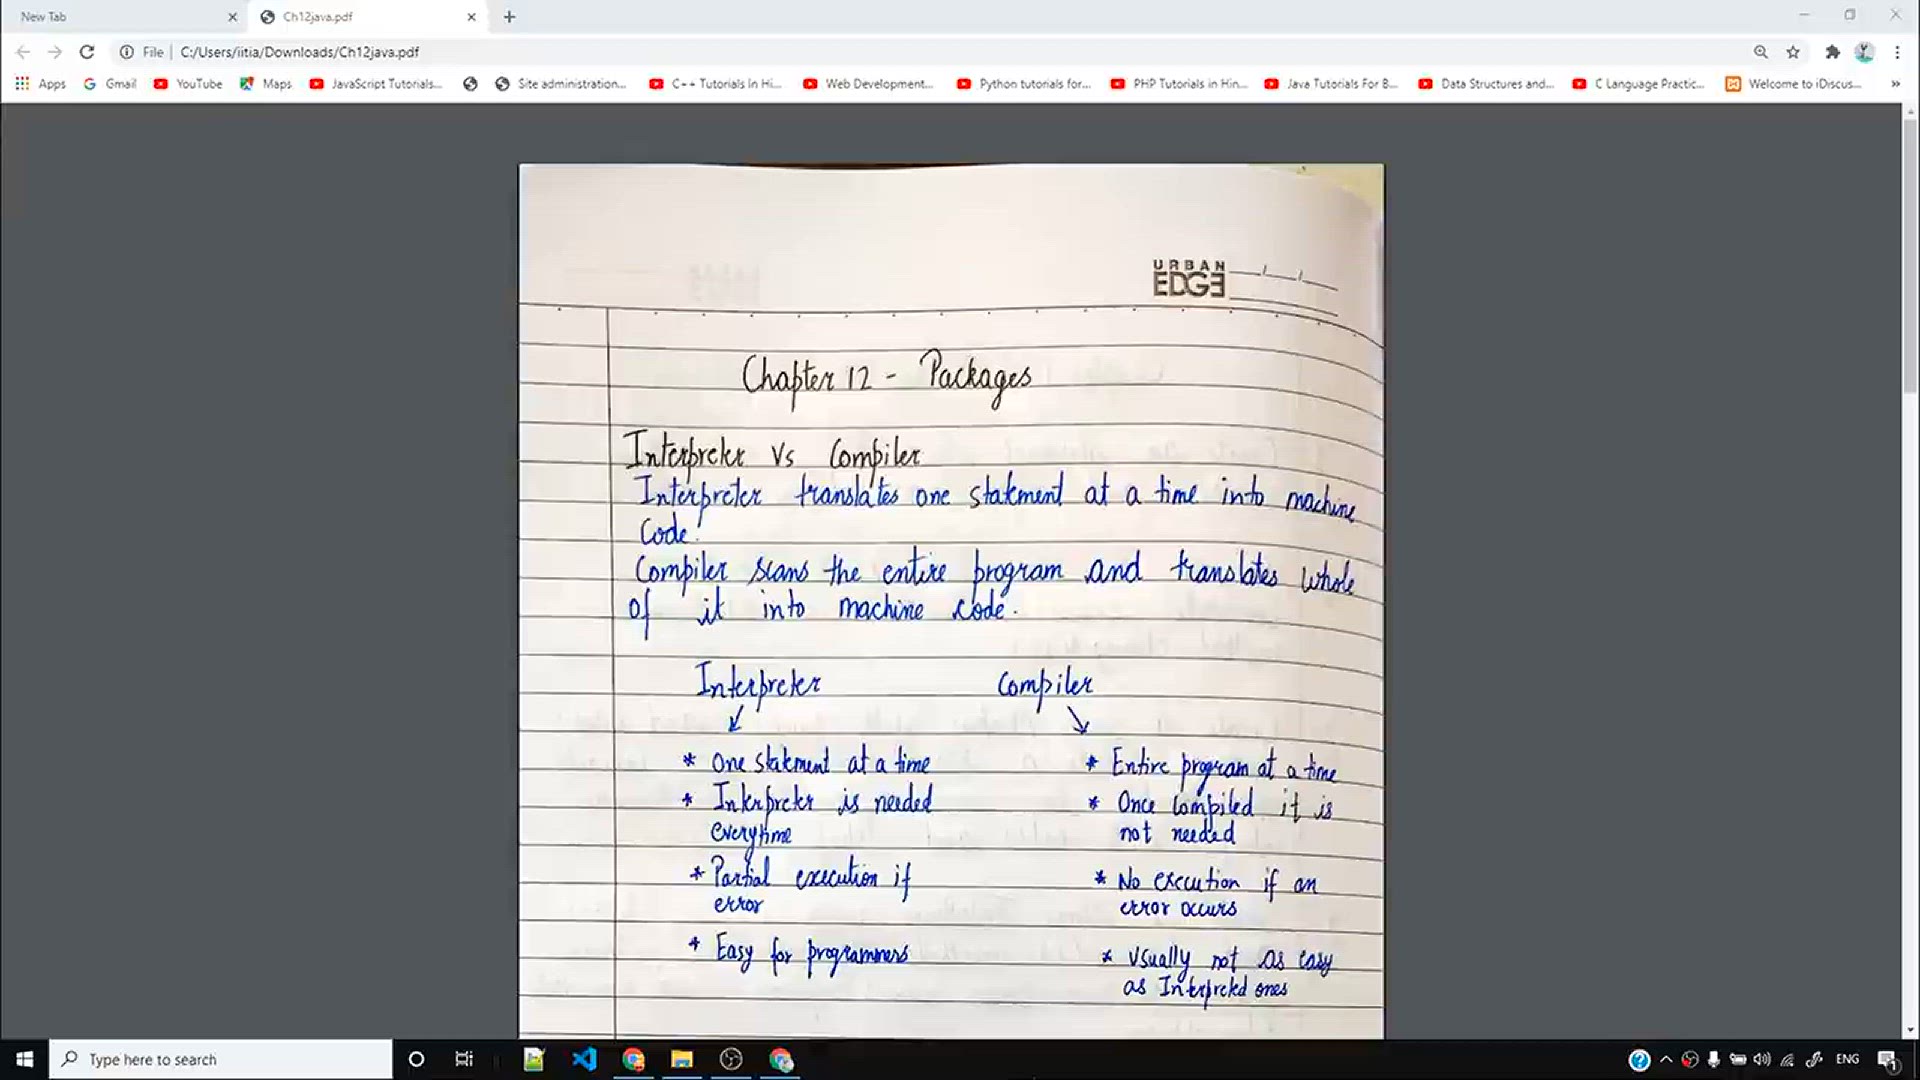 New Tab
Ch12java.pdf
File | C:/Users/iitia/Downloads/Ch12java.pdf
Apps Gmail YouTube Maps JavaScript Tutorials... Site administration... C++ Tutorials In Hi... Web Development... Python tutorials for... PHP Tutorials in Hin... Java Tutorials For B... Data Structures and... C Language Practic... Welcome to iDiscus... »
URBAN
EDGE
Chapter 12 - Packages
Interpreter Vs Compiler
Interpreter translates one statement at a time into machine
Code.
Compiler scans the entire program and translates whole
of it into machine code.
Interpreter Compiler
* One statement at a time
* Entire program at a time
* Interpreter is needed
everytime
* Once compiled it is
not needed
* Partial execution if
error
* No execution if an
error occurs
* Easy for programmers
* Usually not as easy
as Interpreted ones
Type here to search
ENG